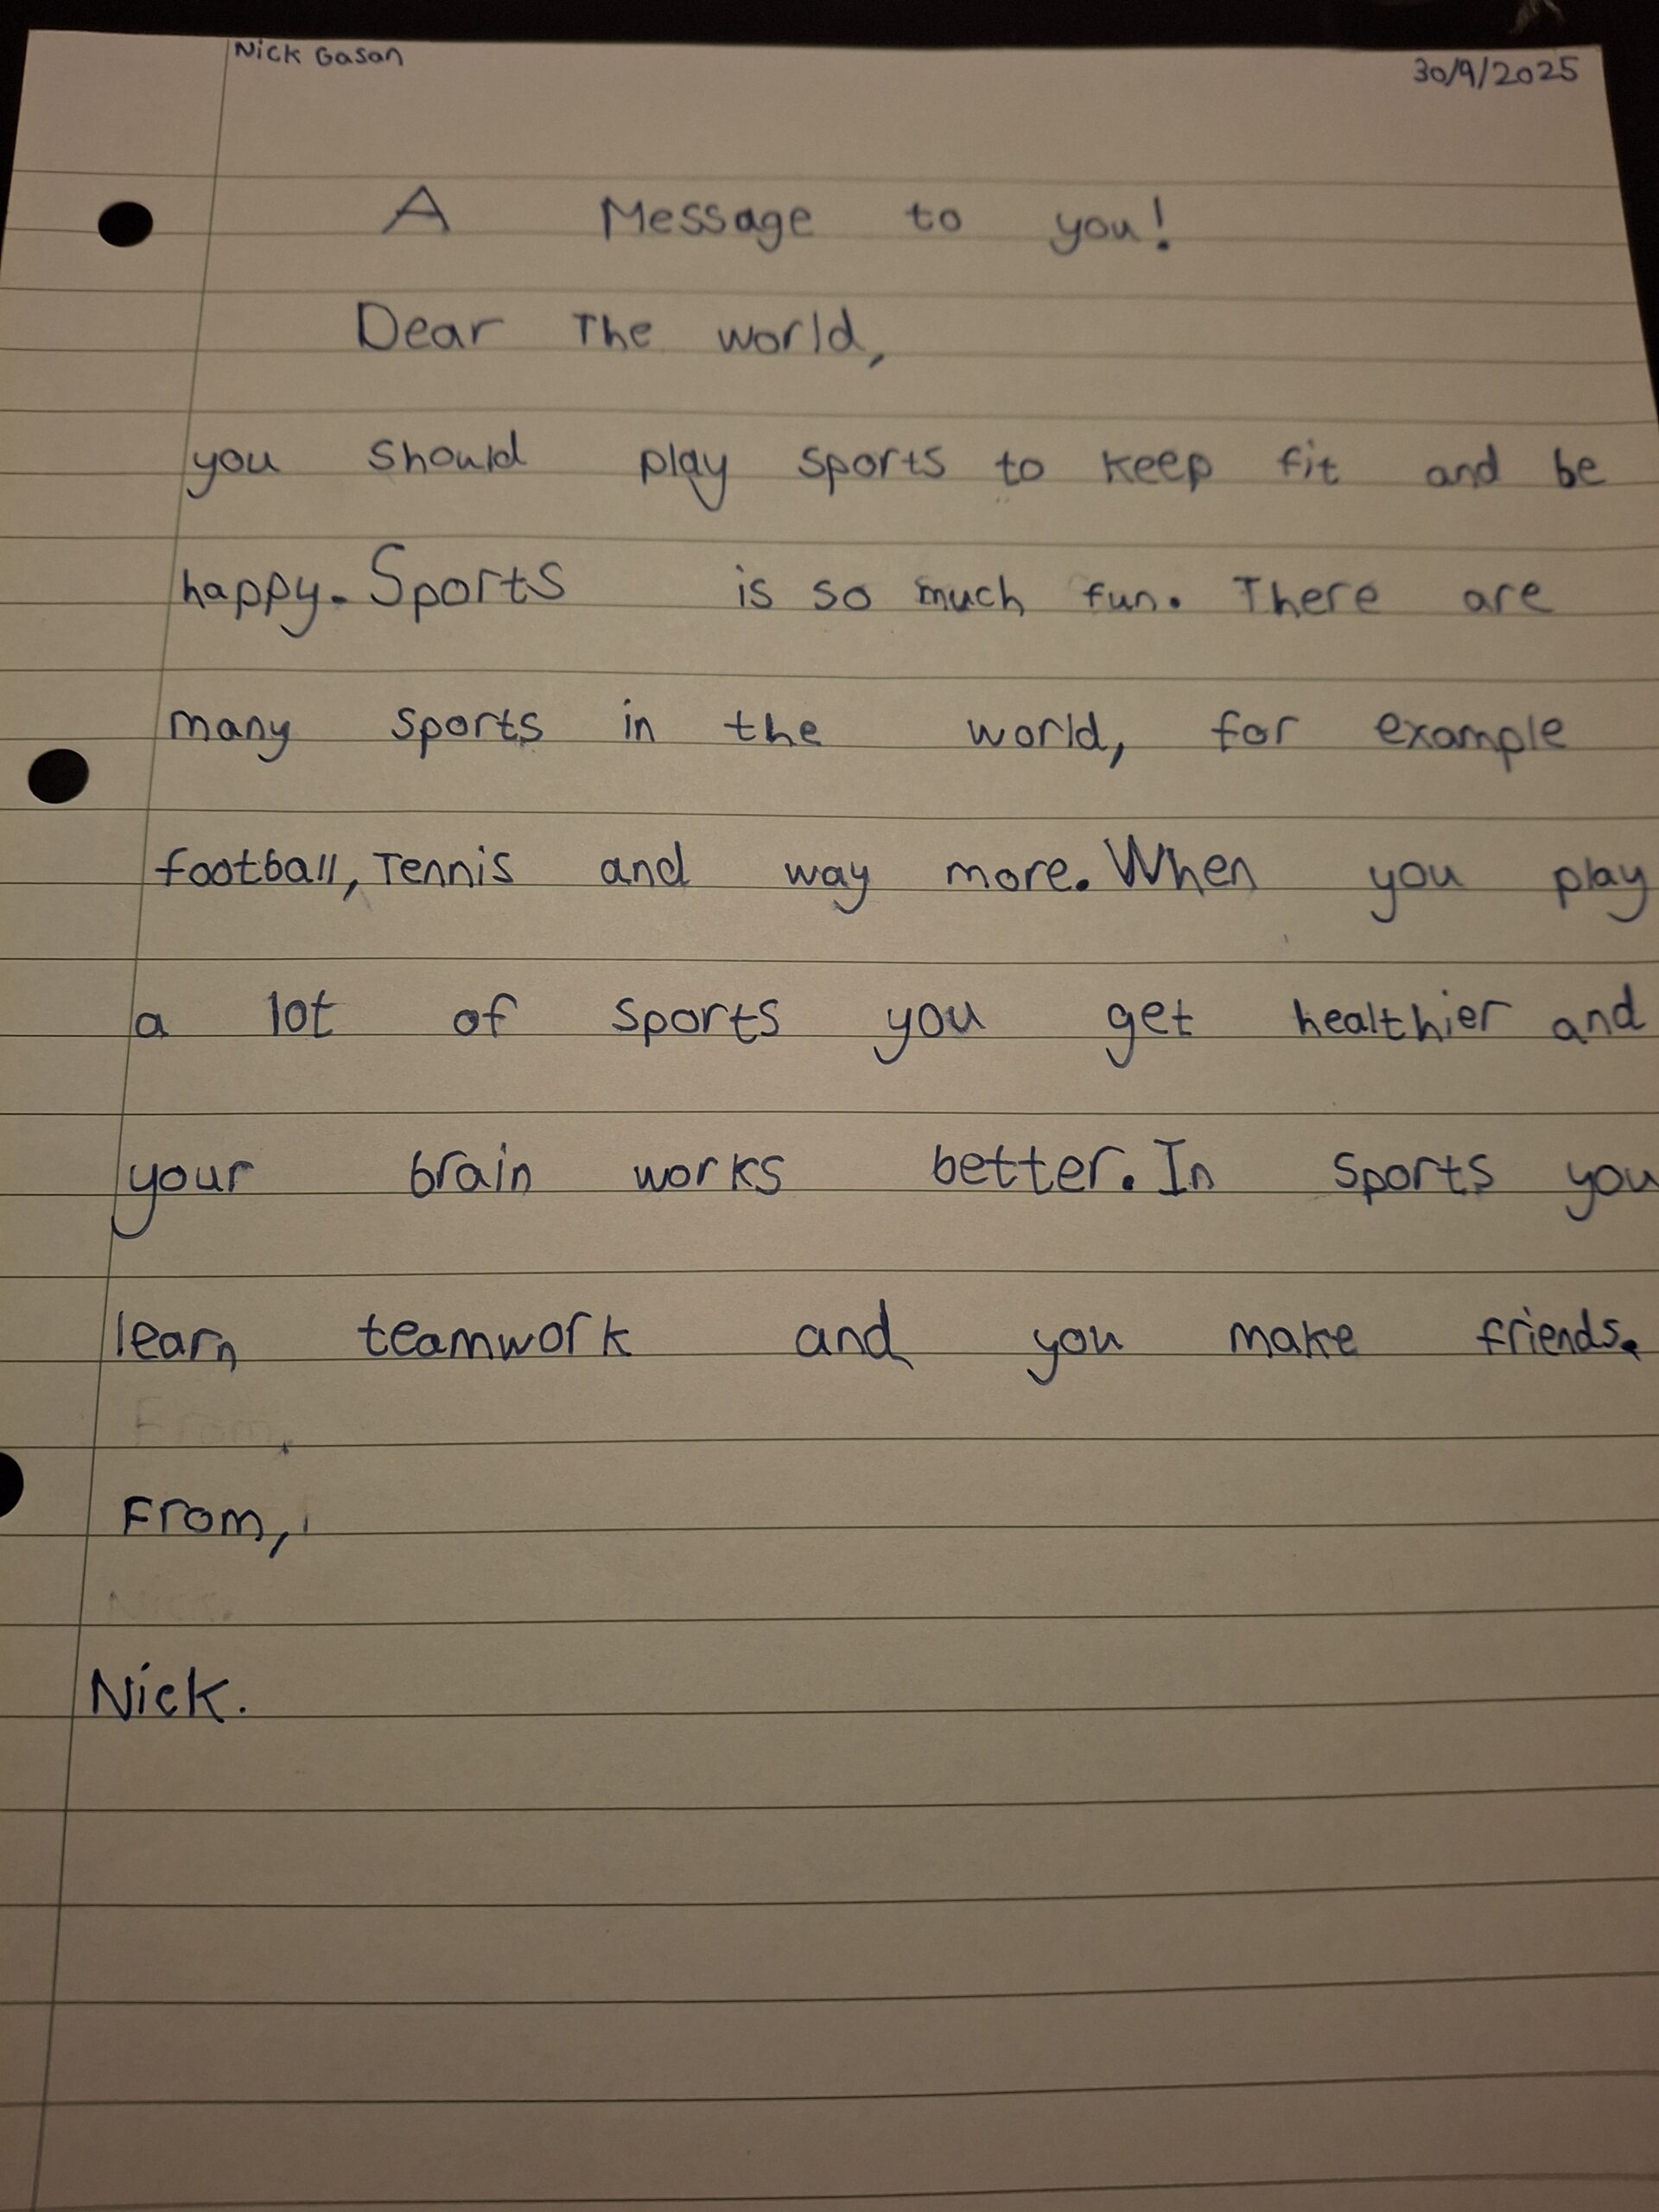 Nick Gasan
30/9/2025
A Message to you!
Dear The world,
you should play sports to keep fit and be
happy. Sports is so much fun. There are
many sports in the world, for example
football, Tennis and way more. When you play
a lot of sports you get healthier and
your brain works better. In sports you
learn teamwork and you make friends.
From,
Nick.